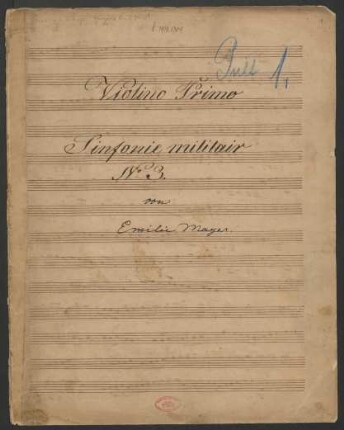 Pult 1.
Violino Primo
Sinfonie militair
No 3.
von
Emilie Mayer.